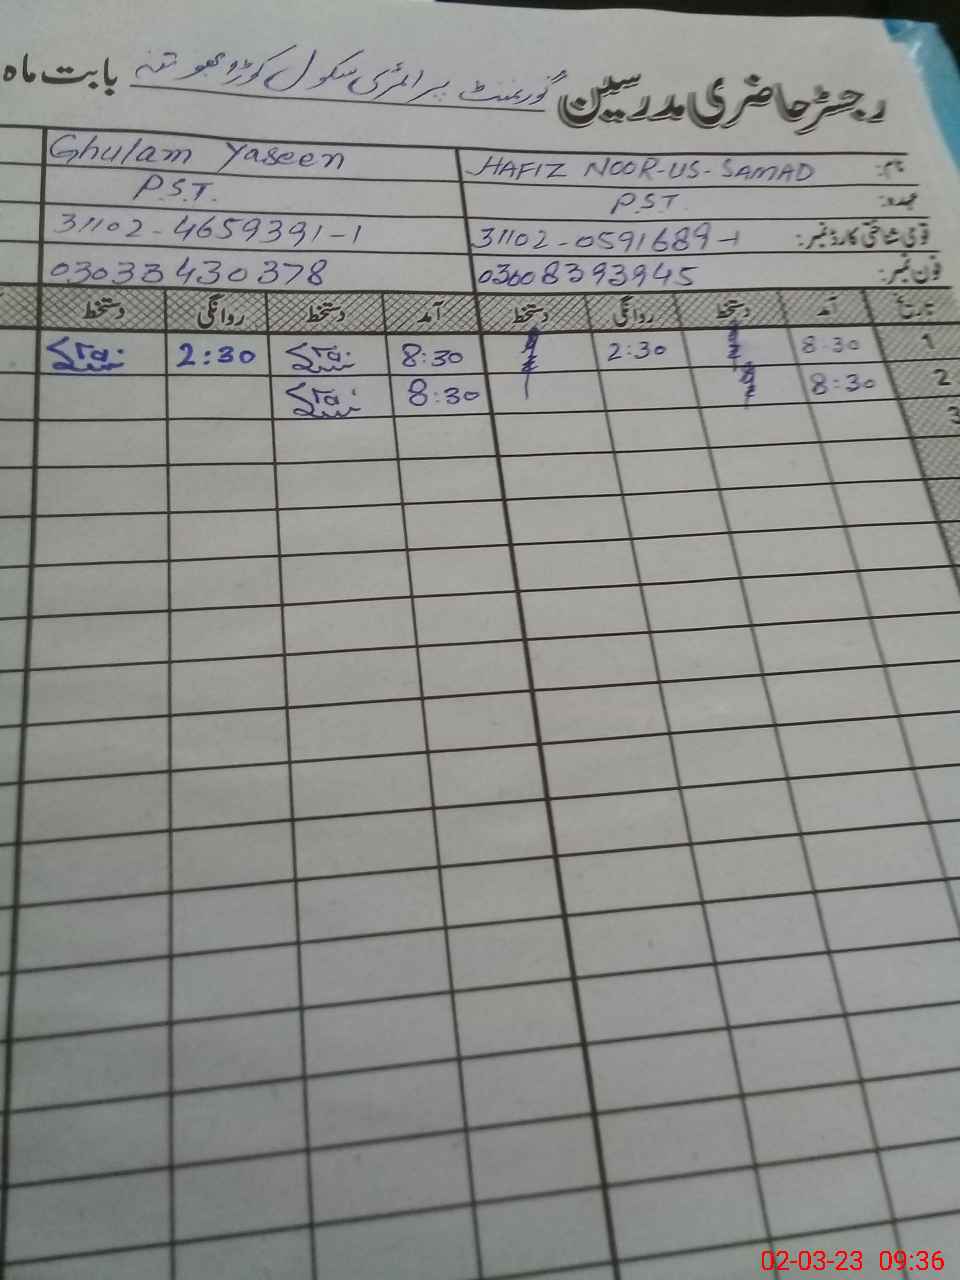 رجسٹر حاضری مدرسین گورنمنٹ پرائمری سکول بابت ماہ
نام: HAFIZ NOOR-US-SAMAD Ghulam Yaseen
عہدہ: P.S.T. P.S.T.
قومی شناختی کارڈ نمبر: 31102-0591689-1 31102-4659391-1
فون نمبر: 03608393945 03033430378
تاریخ آمد دستخط روانگی دستخط آمد دستخط روانگی دستخط
1 8:30 2:30 8:30 2:30
2 8:30 8:30
3
02-03-23 09:36